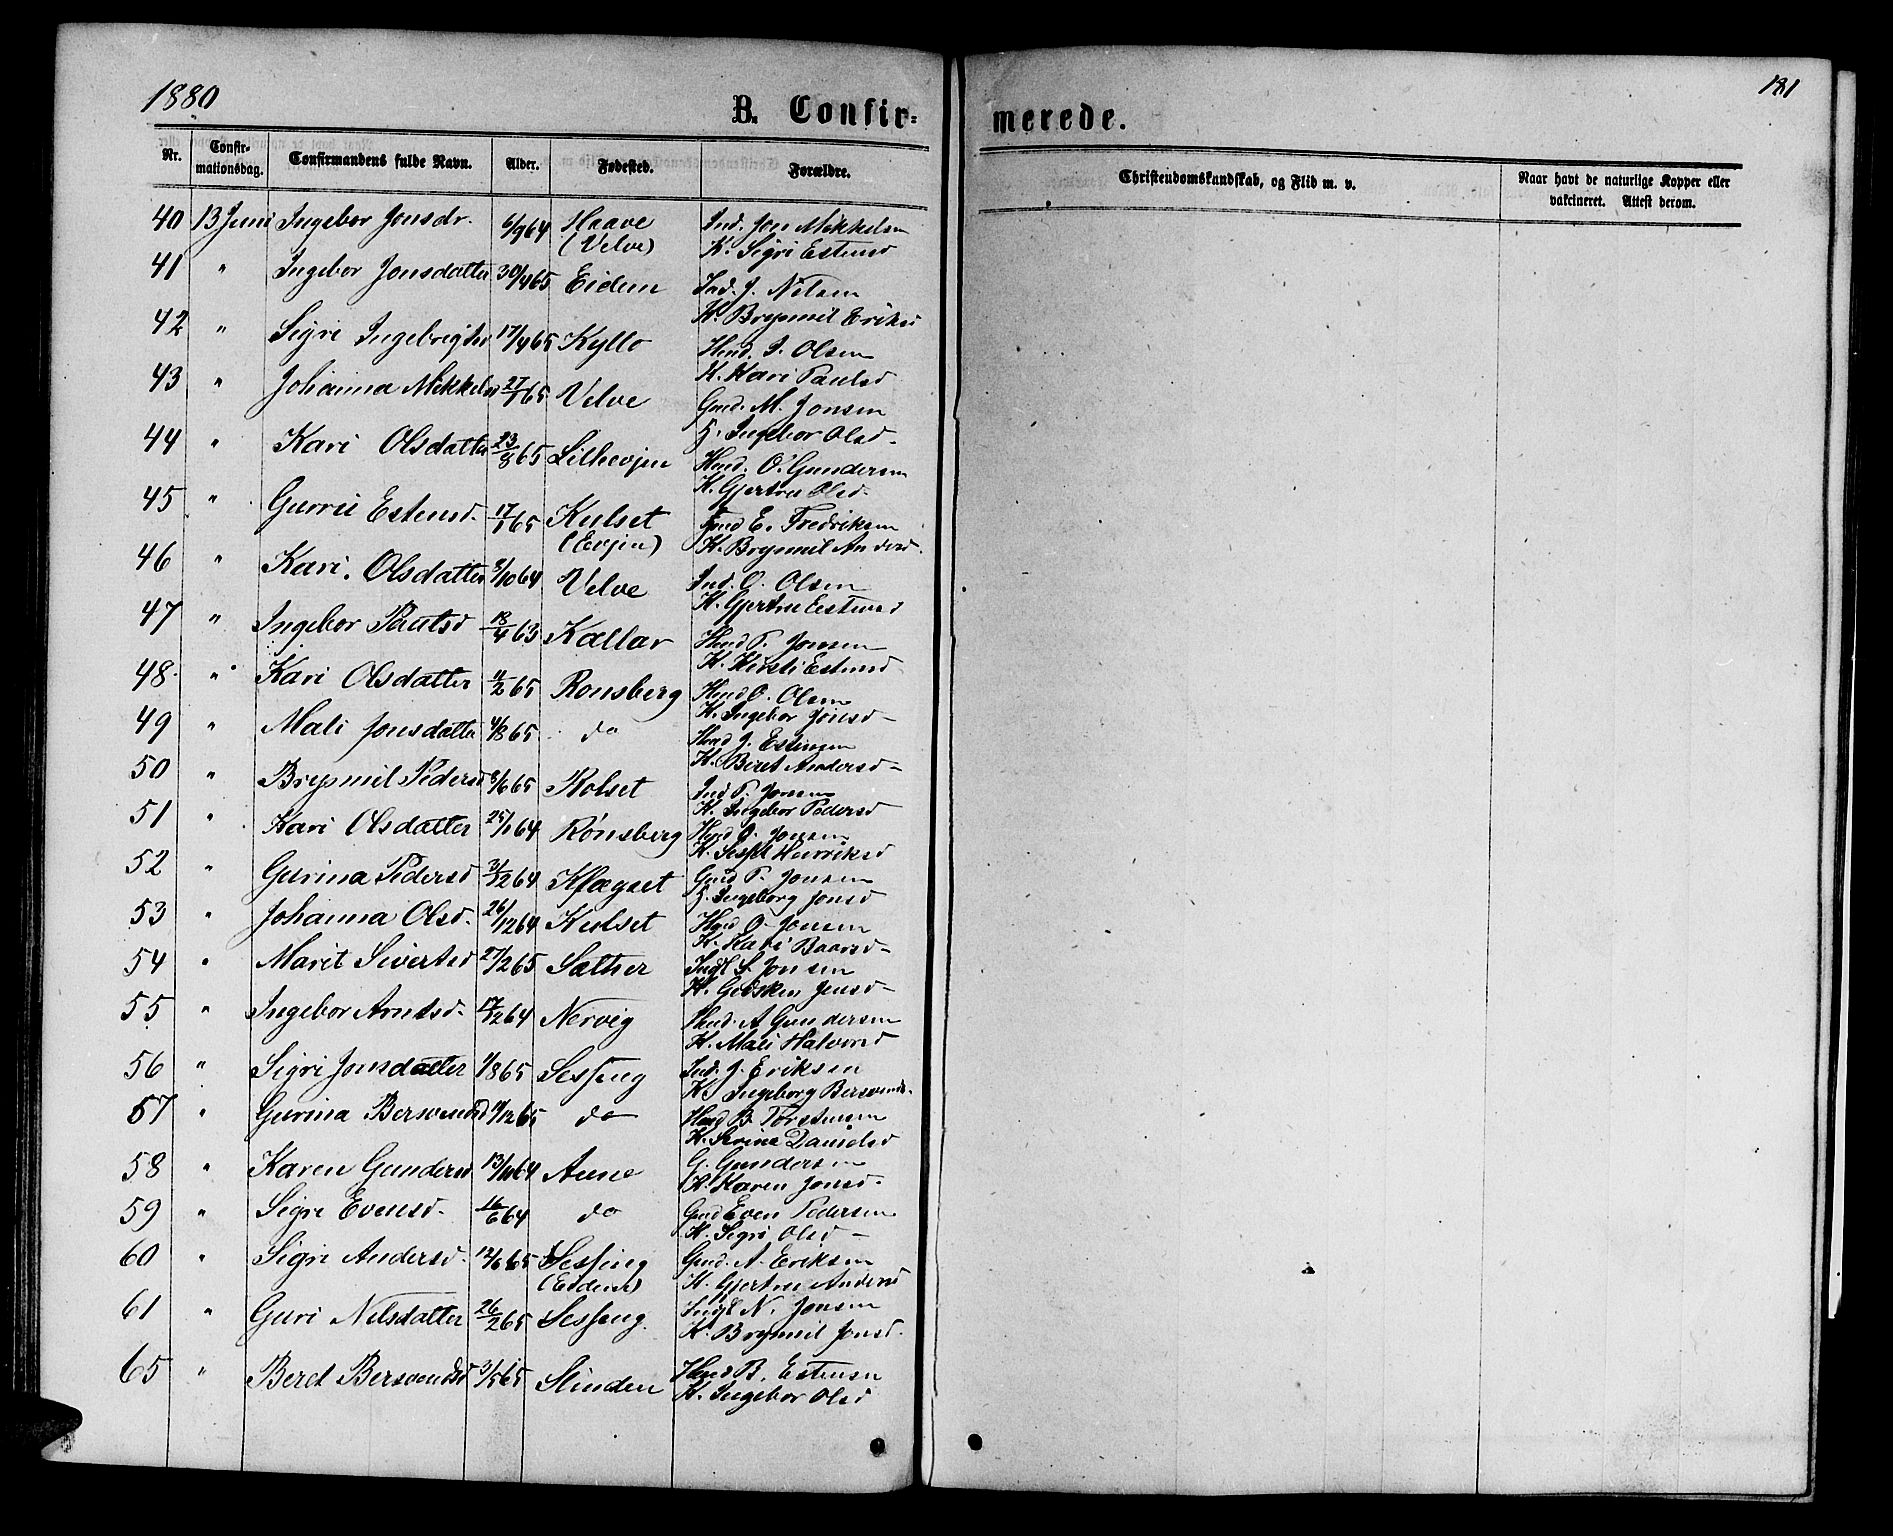 1880
181
B. Confir-
merede.
Nr.
Confir-
mationsdag.
Confirmandens fulde Navn.
Alder.
Fødested.
Forældre.
Christendomskundskab, og Flid m. v.
Naar havt de naturlige Kopper eller
vakcineret. Attest derom.
40 13 Juni Ingebor Jonsdr. 6/9 64 Haave Ind. Jon Mikkelsen
(Velve) K. Sigri Estensd
41 " Ingebor Jonsdatter 30/4 65 Eidem Ind. J. Nilsen
K. Brynnil Eriksd
42 " Sigri Ingebrigtsd 17/4 65 Kyllo Husd. I. Olsen
K. Kari Paulsd
43 " Johanna Mikkelsd 27/1 65 Velve Gmd. M. Jonsen
H. Ingebor Olsd.
44 " Kari Olsdatter 23/8 65 Lillevjen Husd. O. Gundersen
K. Gjertru Olsd.
45 " Gurru Estensd. 17/1 65 Kulset E. Fredriksen
(Evjen) K. Brynnil Andersd.
46 " Kari Olsdatter 8/10 64 Velve Ind. O. Olsen
K. Gjertru Estensd
47 " Ingebor Paulsd 18/4 63 Kallar Husd P. Jonsen
K. Kirsti Estensd
48 " Kari Olsdatter 11/2 65 Ronsberg Husd O. Olsen
K. Ingebor Jonsd
49 " Mali Jonsdatter 4/8 65 do Husd J. Estensen
K. Beret Andersd
50 " Brynnil Pedersd 8/6 65 Rolset Ind P. Jonsen
K. Ingebor Pedersd
51 " Kari Olsdatter 25/1 64 Rønsberg Husd O. Jonsen
K. Henriksd
52 " Gurina Pedersd 3/12 64 Kløgset Gmd P. Jonsen
H. Ingeborg Jonsd
53 " Johanna Olsd. 26/12 64 Kulset Husd O. Jonsen
K. Kari Baarsd
54 " Marit Sivertsd 27/2 65 Sather S. Jonsen
K. Gidsken Jensd
55 " Ingebor Arntsd. 17/12 64 Nervig Husd. A Gundersen
K. Mali Halvorsd
56 " Sigri Jonsdatter 1/8 65 Sesseng Ind. J. Eriksen
K. Ingeborg Bersvends.
57 " Gurina Bersvendsd 11/12 65 do Husd B. Torstensen
K. Serina Danielsd
58 " Karen Gundersd 13/11 64 Aune G. Gundersen
K. Karen Jonsd.
59 " Sigri Evensd. 16/6 64 do Gmd Even Pedersen
K. Sigri Olsd
60 " Sigri Andersd. 12/6 65 Sesseng Gmd. A. Eriksen
(Eidem) K. Gjertru Andersd
61 " Guri Nilsdatter 26/2 65 Sesseng. N. Jonsen
K. Brynnil Jonsd.
65 " Beret Bersvendsd 3/5 65 Slinden Husd B. Estensen
K. Ingebor Olsd